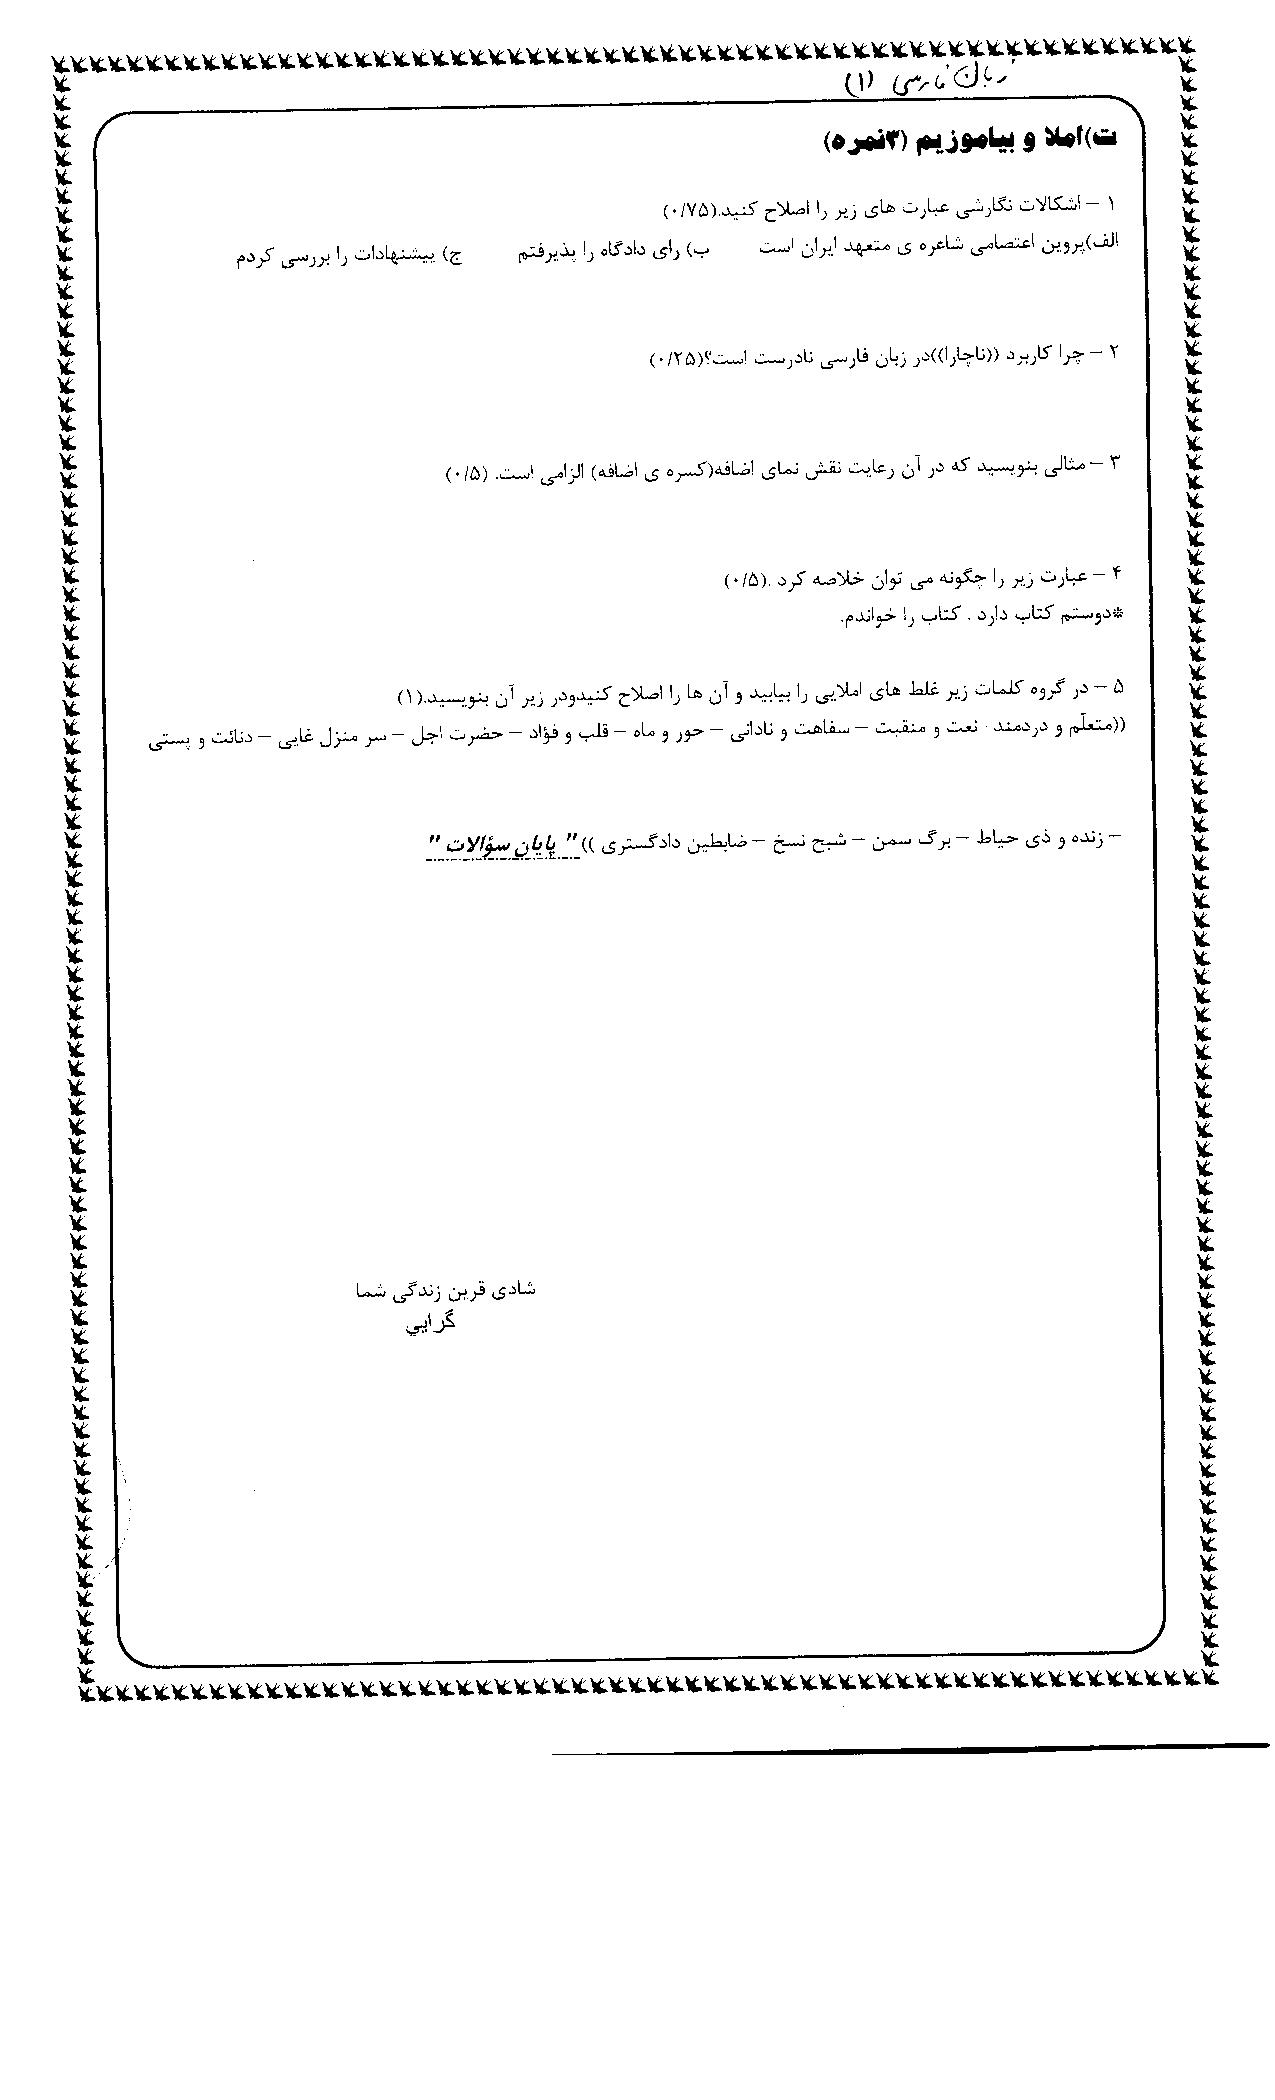 زبان فارسی (۱)
ت)املا و بیاموزیم (۳نمره)
۱ – اشکالات نگارشی عبارت های زیر را اصلاح کنید.(۰/۷۵)
الف)پروین اعتصامی شاعره ی متعهد ایران است ب) رای دادگاه را پذیرفتم ج) پیشنهادات را بررسی کردم
۲ – چرا کاربرد ((ناچارا))در زبان فارسی نادرست است؟(۰/۲۵)
۳ – مثالی بنویسید که در آن رعایت نقش نمای اضافه(کسره ی اضافه) الزامی است. (۰/۵)
۴ – عبارت زیر را چگونه می توان خلاصه کرد .(۰/۵)
*دوستم کتاب دارد . کتاب را خواندم.
۵ – در گروه کلمات زیر غلط های املایی را بیابید و آن ها را اصلاح کنیدودر زیر آن بنویسید.(۱)
((متعلّم و دردمند - نعت و منقبت – سفاهت و نادانی – حور و ماه – قلب و فؤاد – حضرت اجل – سر منزل غایی – دنائت و پستی
– زنده و ذی حیاط – برگ سمن – شبح نسخ – ضابطین دادگستری )) " پایان سؤالات "
شادی قرین زندگی شما
گرایی